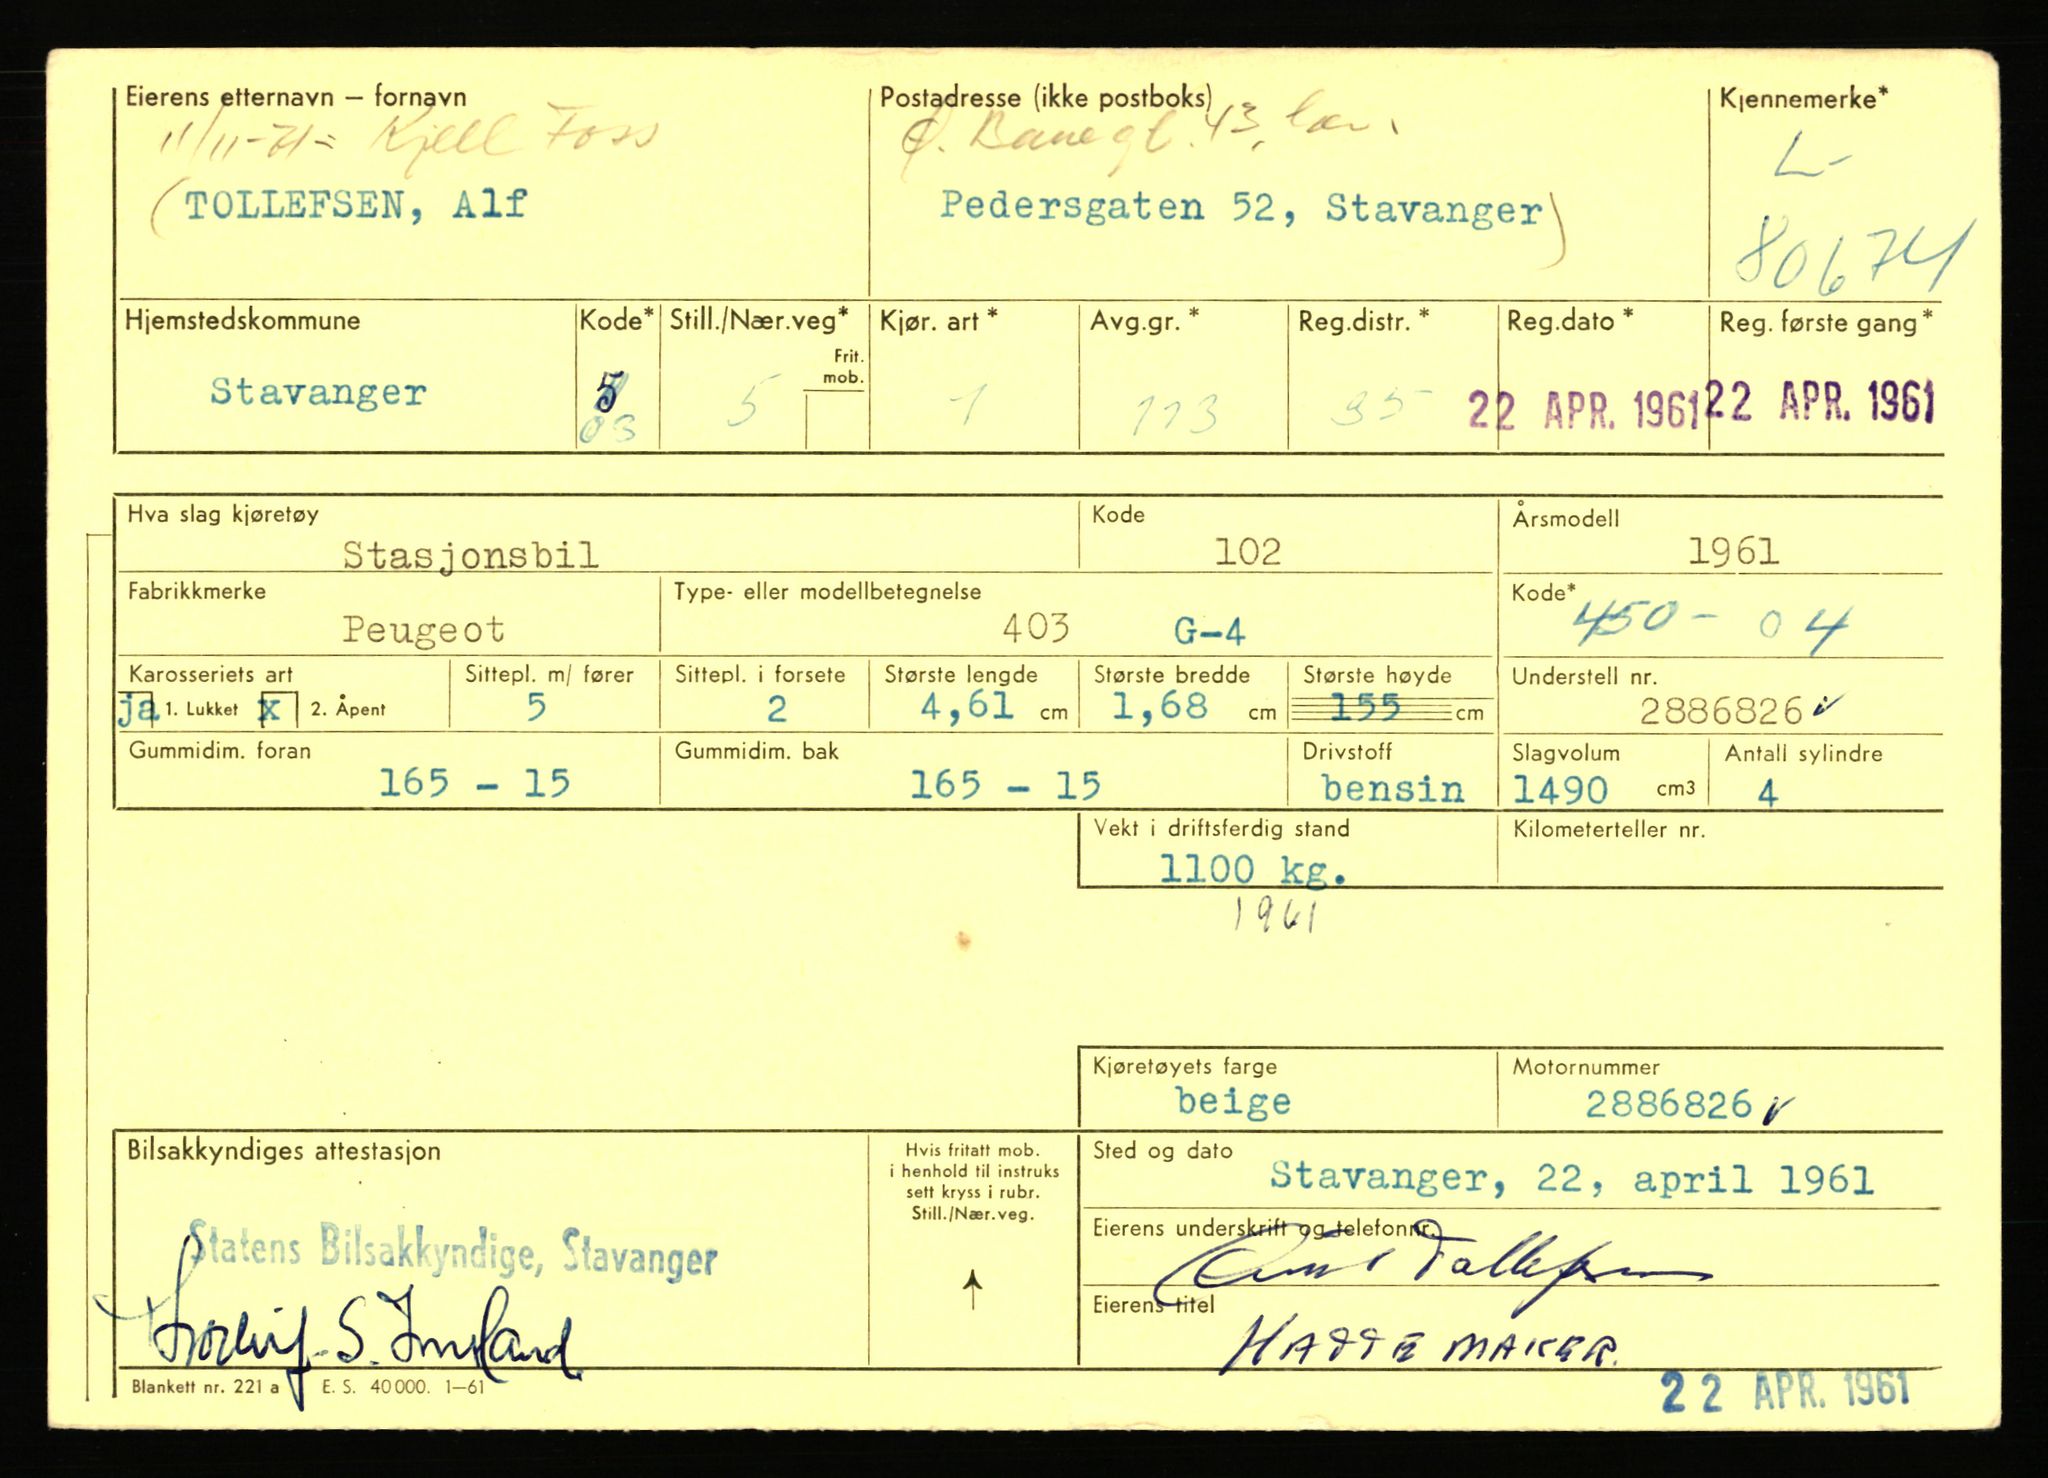 Eierens etternavn – fornavn
Postadresse (ikke postboks)
Kjennemerke*
11/11-71= Kjell Foss
Ø. Banegt. 43, her.
L-
(TOLLEFSEN, Alf
Pedersgaten 52, Stavanger)
80674
Hjemstedskommune
Kode*
Still./Nær.veg*
Kjør. art *
Avg.gr. *
Reg.distr. *
Reg.dato *
Reg. første gang*
Frit. mob.
Stavanger
5
03
5
1
113
35
22 APR. 1961
22 APR. 1961
Hva slag kjøretøy
Kode
Årsmodell
Stasjonsbil
102
1961
Fabrikkmerke
Type- eller modellbetegnelse
Kode*
Peugeot
403 G-4
450-04
Karosseriets art
Sittepl. m/ fører
Sittepl. i forsete
Største lengde
Største bredde
Største høyde
Understell nr.
ja 1. Lukket x 2. Åpent
5
2
4,61 cm
1,68 cm
155 cm
2886826 ✓
Gummidim. foran
Gummidim. bak
Drivstoff
Slagvolum
Antall sylindre
165 - 15
165 - 15
bensin
1490 cm3
4
Vekt i driftsferdig stand
Kilometerteller nr.
1100 kg.
1961
Kjøretøyets farge
Motornummer
beige
2886826 ✓
Bilsakkyndiges attestasjon
Hvis fritatt mob.
i henhold til instruks
sett kryss i rubr.
Still./Nær.veg.
Sted og dato
Stavanger, 22, april 1961
Statens Bilsakkyndige, Stavanger
Eierens underskrift og telefonnr.
Tollefsen
Eierens titel
HATTEMAKER.
Blankett nr. 221 a E. S. 40 000. 1–61
22 APR. 1961